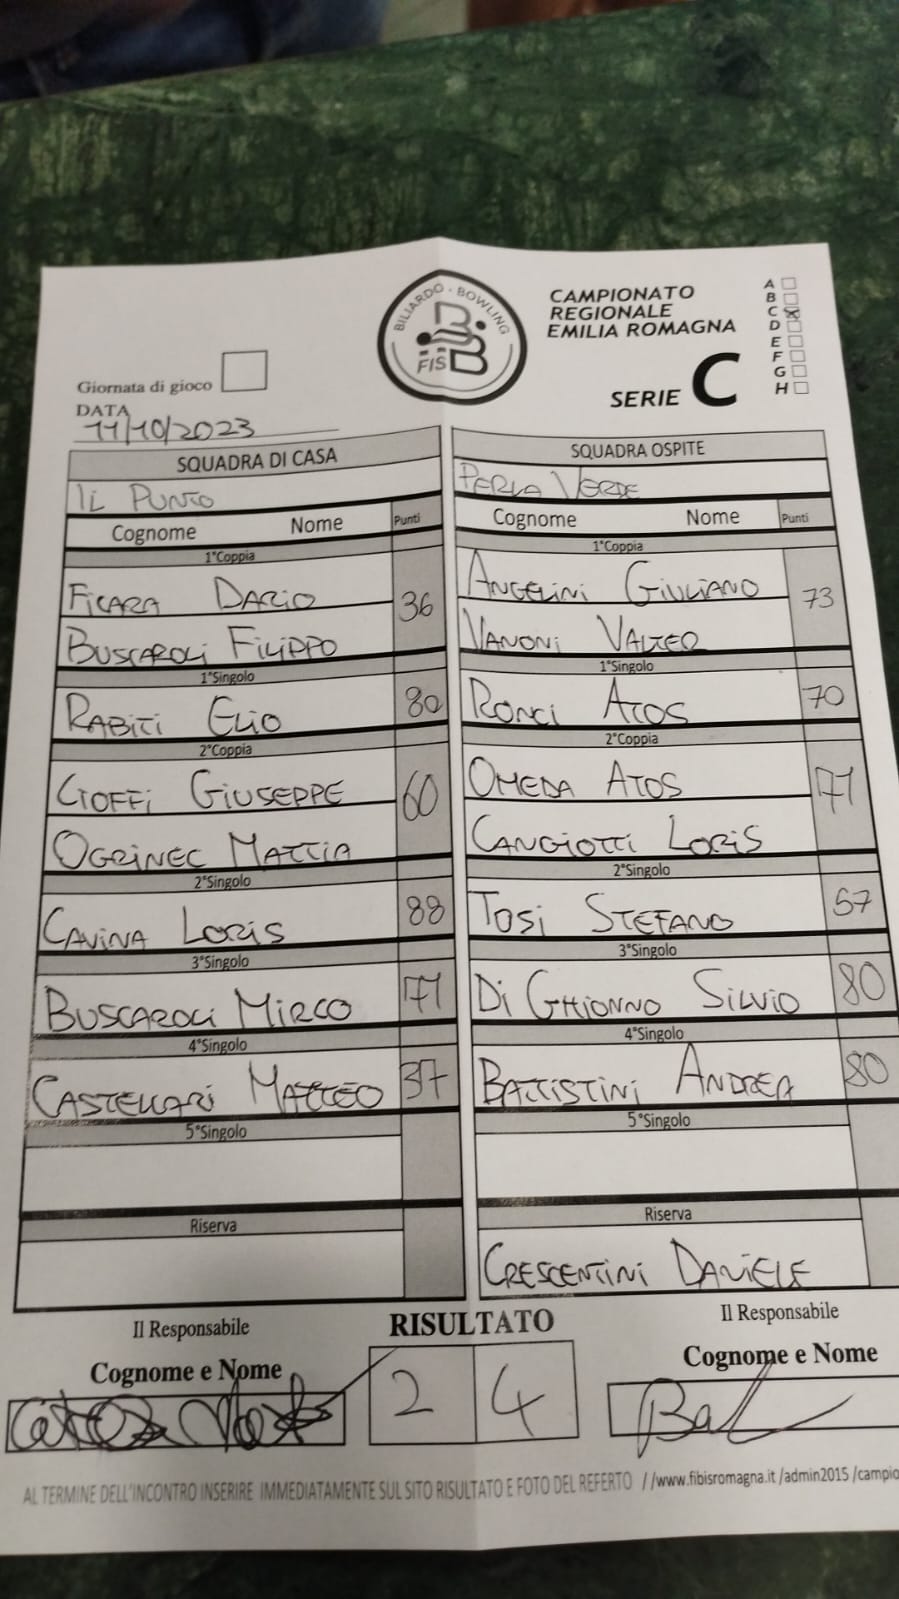 BILIARDO - BOWLING
FISBB
CAMPIONATO
REGIONALE
EMILIA ROMAGNA
SERIE C
A
B
C
D
E
F
G
H
Giornata di gioco
DATA
11/10/2023
SQUADRA DI CASA
IL PUNTO
Cognome Nome Punti
1°Coppia
FICARA DARIO 36
BUSCAROLI FILIPPO
1°Singolo
RABITI ELIO 80
2°Coppia
CIOFFI GIUSEPPE 60
OGRINEC MATTIA
2°Singolo
CAVINA LORIS 88
3°Singolo
BUSCAROLI MIRCO 71
4°Singolo
CASTELLARI MATTEO 37
5°Singolo
Riserva
SQUADRA OSPITE
PERLA VERDE
Cognome Nome Punti
1°Coppia
ANGELINI GIULIANO 73
VANONI VALTER
1°Singolo
RONCI ATOS 70
2°Coppia
OMEDA ATOS 71
CANGIOTTI LORIS
2°Singolo
TOSI STEFANO 57
3°Singolo
DI GHIONNO SILVIO 80
4°Singolo
BATTISTINI ANDREA 80
5°Singolo
Riserva
CRESCENTINI DANIELE
Il Responsabile
Cognome e Nome
RISULTATO
2 4
Il Responsabile
Cognome e Nome
AL TERMINE DELL'INCONTRO INSERIRE IMMEDIATAMENTE SUL SITO RISULTATO E FOTO DEL REFERTO //www.fibisromagna.it /admin2015 /campio